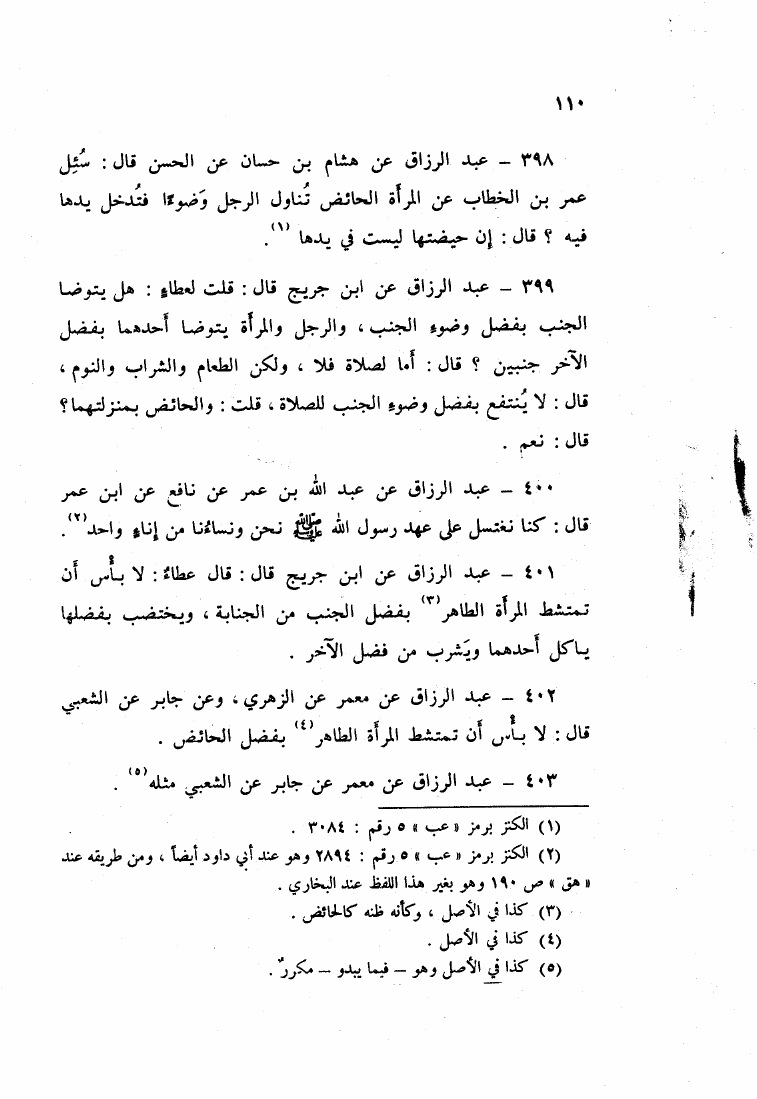 ١١٠
٣٩٨ – عبد الرزاق عن هشام بن حسان عن الحسن قال : سُئِل
عمر بن الخطاب عن المرأة الحائض تُناول الرجل وَضوءًا فتُدخل يدها
فيه ؟ قال : إن حيضتها ليست في يدها (١).
٣٩٩ – عبد الرزاق عن ابن جريج قال : قلت لعطاءٍ : هل يتوضا
الجنب بفضل وضوءِ الجنب ، والرجل والمرأة يتوضا أحدهما بفضل
الآخر جنبين ؟ قال : أما لصلاة فلا ، ولكن الطعام والشراب والنوم ،
قال : لا يُنتفع بفضل وضوءِ الجنب للصلاة ، قلت : والحائض بمنزلتهما؟
قال : نعم .
٤٠٠ – عبد الرزاق عن عبد الله بن عمر عن نافع عن ابن عمر
قال : كنا نغتسل على عهد رسول الله ﷺ نحن ونساءُنا من إناءٍ واحد(٢).
٤٠١ – عبد الرزاق عن ابن جريج قال : قال عطاءٌ : لا بأْس أن
تمتشط المرأة الطاهر(٣) بفضل الجنب من الجنابة ، ويختضب بفضلها
ياكل أحدهما ويَشرب من فضل الآخر .
٤٠٢ – عبد الرزاق عن معمر عن الزهري ، وعن جابر عن الشعبي
قال : لا بأْس أن تمتشط المرأة الطاهر(٤) بفضل الحائض .
٤٠٣ – عبد الرزاق عن معمر عن جابر عن الشعبي مثله(٥) .
(١) الكنز برمز « عب » ٥ رقم : ٣٠٨٤ .
(٢) الكنز برمز « عب » ٥ رقم : ٢٨٩٤ وهو عند أبي داود أيضاً ، ومن طريقه عند
« هق » ص ١٩٠ وهو بغير هذا اللفظ عند البخاري .
(٣) كذا في الأصل ، وكأنه ظنه كالحائض .
(٤) كذا في الأصل .
(٥) كذا في الأصل وهو – فيما يبدو – مكررٌ .